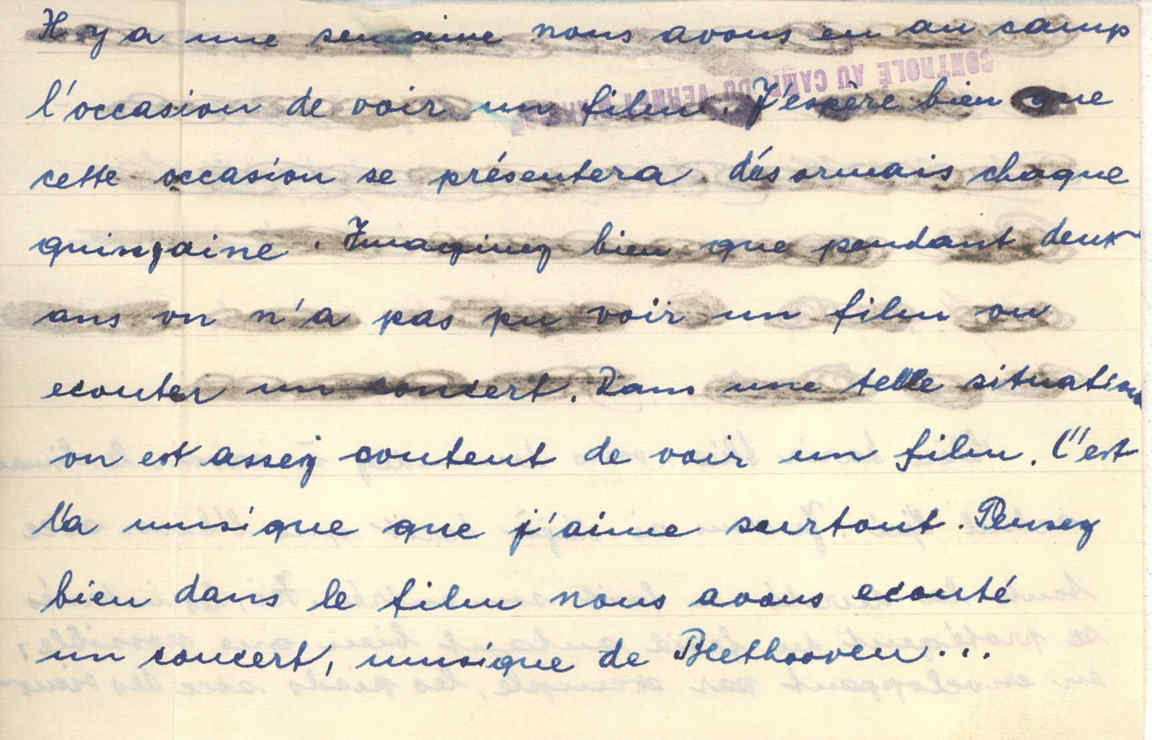 Il y a une semaine nous avons eu au camp
l'occasion de voir un film. J'espère bien que
cette occasion se présentera désormais chaque
quinzaine. Imaginez bien que pendant deux
ans on n'a pas pu voir un film ou
ecouter un concert. Dans une telle situation
on est assez content de voir un film. C'est
la musique que j'aime surtout. Pensez
bien dans le film nous avons ecouté
un concert, musique de Beethooven...
CONTROLÉ AU CAMP DU VERNET